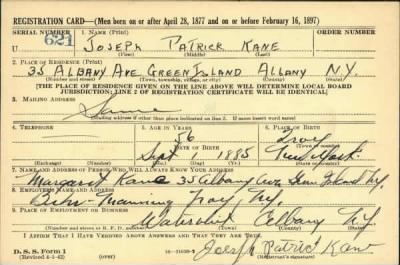 REGISTRATION CARD—(Men born on or after April 28, 1877 and on or before February 16, 1897)
SERIAL NUMBER 1. NAME (Print) ORDER NUMBER
U 621 JOSEPH PATRICK KANE
(First) (Middle) (Last)
2. PLACE OF RESIDENCE (Print)
35 ALBANY AVE GREEN ISLAND ALBANY N.Y.
(Number and street) (Town, township, village, or city) (County) (State)
[THE PLACE OF RESIDENCE GIVEN ON THE LINE ABOVE WILL DETERMINE LOCAL BOARD
JURISDICTION; LINE 2 OF REGISTRATION CERTIFICATE WILL BE IDENTICAL]
3. MAILING ADDRESS
Same
[Mailing address if other than place indicated on line 2. If same insert word same]
4. TELEPHONE 5. AGE IN YEARS 6. PLACE OF BIRTH
56 Troy
DATE OF BIRTH (Town or county)
Sept 1885 New York
(Exchange) (Number) (Mo.) (Day) (Yr.) (State or country)
7. NAME AND ADDRESS OF PERSON WHO WILL ALWAYS KNOW YOUR ADDRESS
Margaret Kane 35 Albany Ave Green Island N.Y.
8. EMPLOYER'S NAME AND ADDRESS
Manning Troy, N.Y.
9. PLACE OF EMPLOYMENT OR BUSINESS
Watervliet Albany N.Y.
(Number and street or R. F. D. number) (Town) (County) (State)
I AFFIRM THAT I HAVE VERIFIED ABOVE ANSWERS AND THAT THEY ARE TRUE.
D. S. S. Form 1 Joseph Patrick Kane
(Revised 4-1-42) (Registrant's signature)